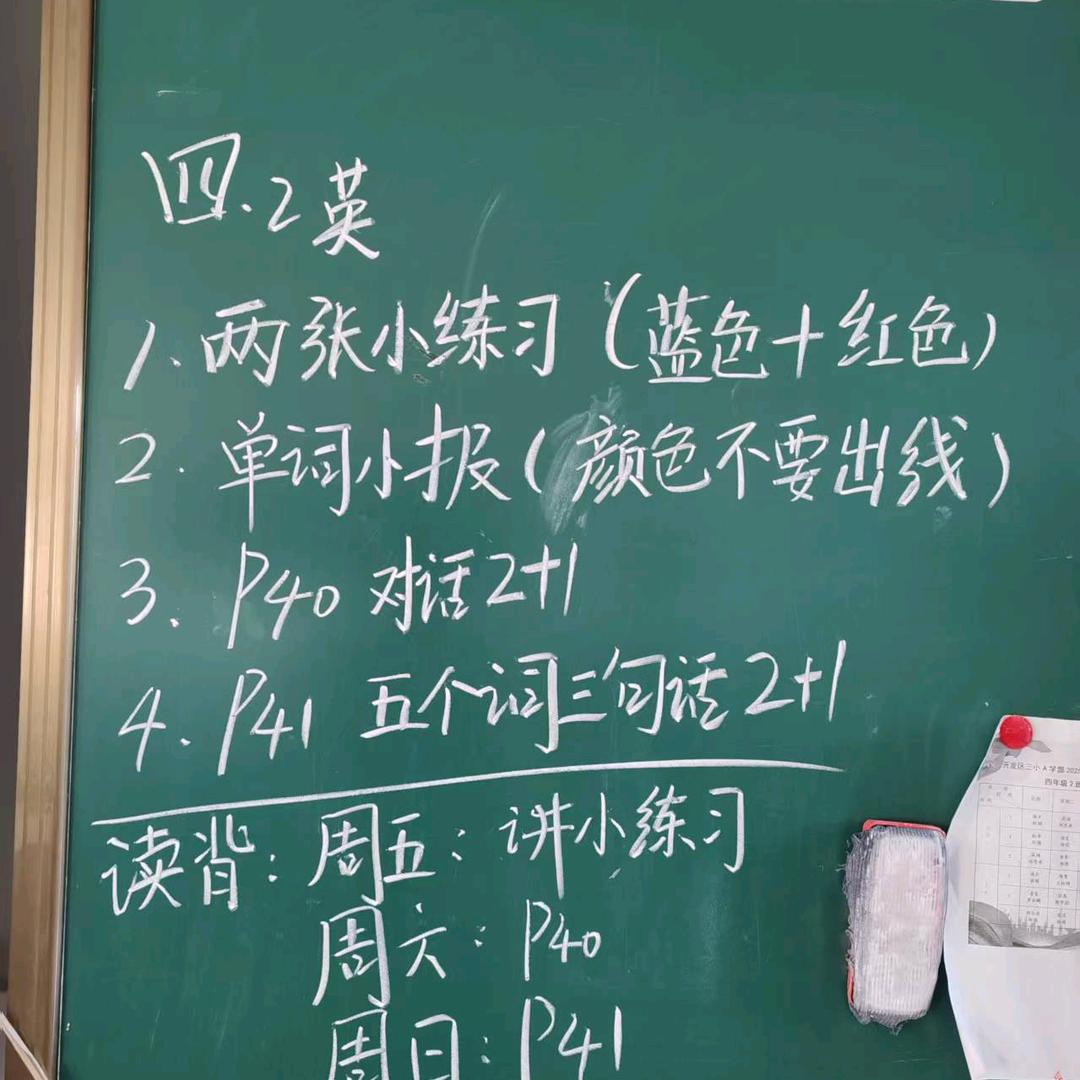 四.2英
1.两张小练习(蓝色+红色)
2.单词小报(颜色不要出线)
3.P40 对话2+1
4.P41 五个词三句话2+1
读背:周五:讲小练习
周六:P40
周日:P41
开发区三小A学部2025
四年级2班